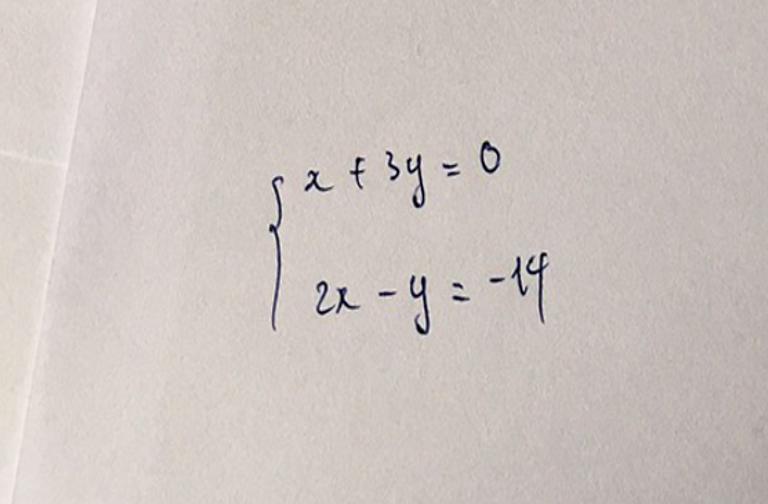 x + 3y = 0
2x - y = -14